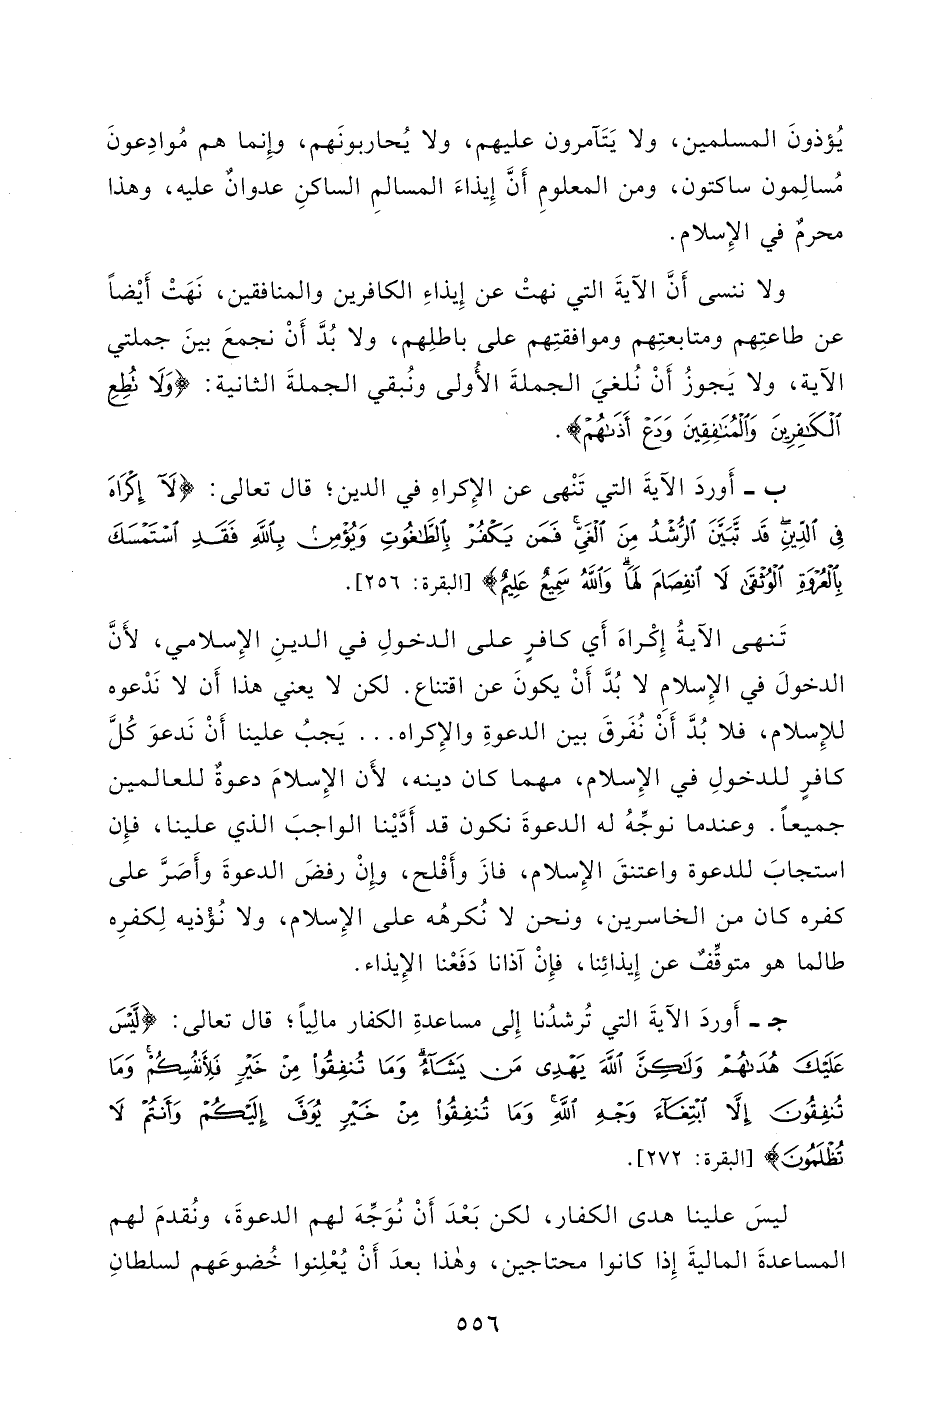 يُؤذونَ المسلمين، ولا يَتَآمرون عليهم، ولا يُحاربونَهم، وإِنما هم مُوادِعونَ
مُسالِمون ساكتون، ومن المعلومِ أَنَّ إِيذاءَ المسالمِ الساكنِ عدوانٌ عليه، وهذا
محرمٌ في الإِسلام.
ولا ننسى أَنَّ الآيةَ التي نهتْ عن إِيذاءِ الكافرين والمنافقين، نَهَتْ أَيْضاً
عن طاعتِهم ومتابعتِهم وموافقتِهم على باطلِهم، ولا بُدَّ أَنْ نجمعَ بينَ جملتي
الآية، ولا يَجوزُ أَنْ نُلغيَ الجملةَ الأُولى ونُبقي الجملةَ الثانية: ﴿وَلَا نُطِعِ
ٱلْكَٰفِرِينَ وَٱلْمُنَٰفِقِينَ وَدَعْ أَذَىٰهُمْ﴾.
ب ـ أَوردَ الآيةَ التي تَنْهى عن الإِكراهِ في الدين؛ قال تعالى: ﴿لَآ إِكْرَاهَ
فِى ٱلدِّينِ قَد تَّبَيَّنَ ٱلرُّشْدُ مِنَ ٱلْغَيِّ فَمَن يَكْفُرْ بِٱلطَّٰغُوتِ وَيُؤْمِنۢ بِٱللَّهِ فَقَدِ ٱسْتَمْسَكَ
بِٱلْعُرْوَةِ ٱلْوُثْقَىٰ لَا ٱنفِصَامَ لَهَا وَٱللَّهُ سَمِيعٌ عَلِيمٌ﴾ [البقرة: ٢٥٦].
تَنهى الآيةُ إِكْراهَ أَي كافرٍ على الدخولِ في الدينِ الإِسلامي، لأَنَّ
الدخولَ في الإِسلامِ لا بُدَّ أَنْ يكونَ عن اقتناع. لكن لا يعني هذا أن لا نَدْعوه
للإِسلام، فلا بُدَّ أَنْ نُفَرقَ بين الدعوةِ والإِكراه... يَجبُ علينا أَنْ نَدعوَ كُلَّ
كافرٍ للدخولِ في الإِسلام، مهما كان دينه، لأَن الإِسلامَ دعوةٌ للعالمين
جميعاً. وعندما نوجِّهُ له الدعوةَ نكون قد أَدَّيْنا الواجبَ الذي علينا، فإِن
استجابَ للدعوة واعتنقَ الإِسلام، فازَ وأَفْلح، وإِنْ رفضَ الدعوةَ وأَصَرَّ على
كفره كان من الخاسرين، ونحن لا نُكرهُه على الإِسلام، ولا نُؤْذيه لِكفرِه
طالما هو متوقِّفٌ عن إِيذائِنا، فإِنْ آذانا دَفَعْنا الإِيذاء.
جـ ـ أَوردَ الآيةَ التي تُرشدُنا إِلى مساعدةِ الكفار مالِياً؛ قال تعالى: ﴿لَّيْسَ
عَلَيْكَ هُدَىٰهُمْ وَلَٰكِنَّ ٱللَّهَ يَهْدِى مَن يَشَآءُ وَمَا تُنفِقُوا۟ مِنْ خَيْرٍ فَلِأَنفُسِكُمْ وَمَا
تُنفِقُونَ إِلَّا ٱبْتِغَآءَ وَجْهِ ٱللَّهِ وَمَا تُنفِقُوا۟ مِنْ خَيْرٍ يُوَفَّ إِلَيْكُمْ وَأَنتُمْ لَا
تُظْلَمُونَ﴾ [البقرة: ٢٧٢].
ليسَ علينا هدى الكفار، لكن بَعْدَ أَنْ نُوَجِّهَ لهم الدعوةَ، ونُقدمَ لهم
المساعدةَ الماليةَ إِذا كانوا محتاجين، وهٰذا بعدَ أَنْ يُعْلِنوا خُضوعَهم لسلطانِ
٥٥٦